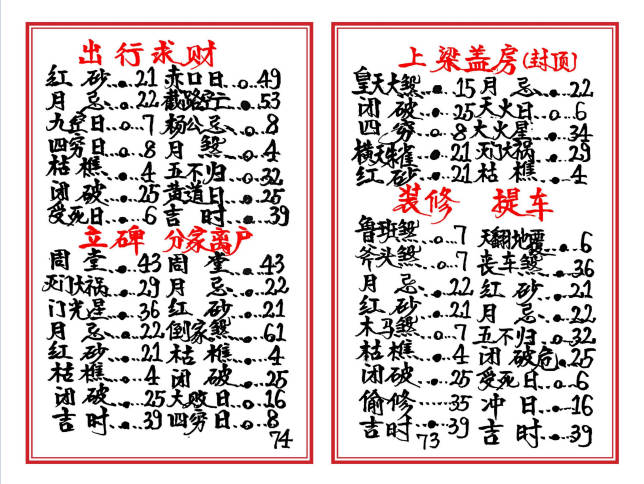 出行求财
红砂…21 赤口日…49
月忌…22 截路空亡…53
九空日…7 杨公忌…8
四穷日…8 月煞…4
枯樵…4 五不归…32
闭破…25 黄道日…25
受死日…6 吉时…39
立碑 分家离户
周堂…43 周堂…43
灭门大祸…29 月忌…22
门光星…36 红砂…21
月忌…22 倒家煞…61
红砂…21 枯樵…4
枯樵…4 闭破…25
闭破…25 大败日…16
吉时…39 四穷日…8
74
上梁盖房(封顶)
皇天大煞…15 月忌…22
闭破…25 天火日…6
四穷…8 大火星…34
横天朱雀…21 灭门大祸…29
红砂…21 枯樵…4
装修 提车
鲁班煞…7 天翻地覆…6
斧头煞…7 丧车煞…36
月忌…22 红砂…21
红砂…21 月忌…22
木马煞…7 五不归…32
枯樵…4 闭破危…25
闭破…25 受死日…6
偷修…35 冲日…16
吉时…39 吉时…39
73